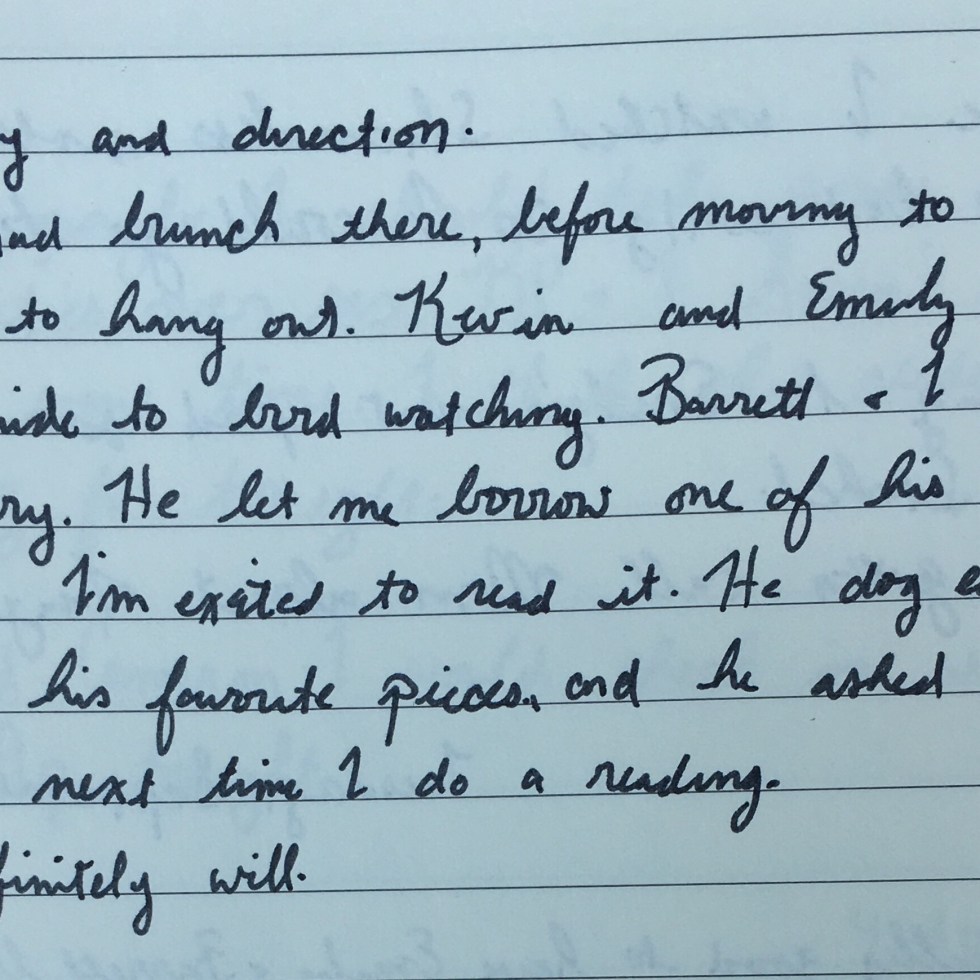 y and direction.
had brunch there, before moving to
to hang out. Kevin and Emily
uide to bird watching. Barrett & I
ry. He let me borrow one of his
I'm exited to read it. He dog e
his favourite pieces, and he asked
next time I do a reading.
finitely will.